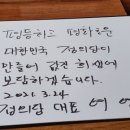 평등하고 평화로운
대한민국 정의당이
만들어 값진 희생에
보답하겠습니다.
2021.3.24
정의당 대표 여 영